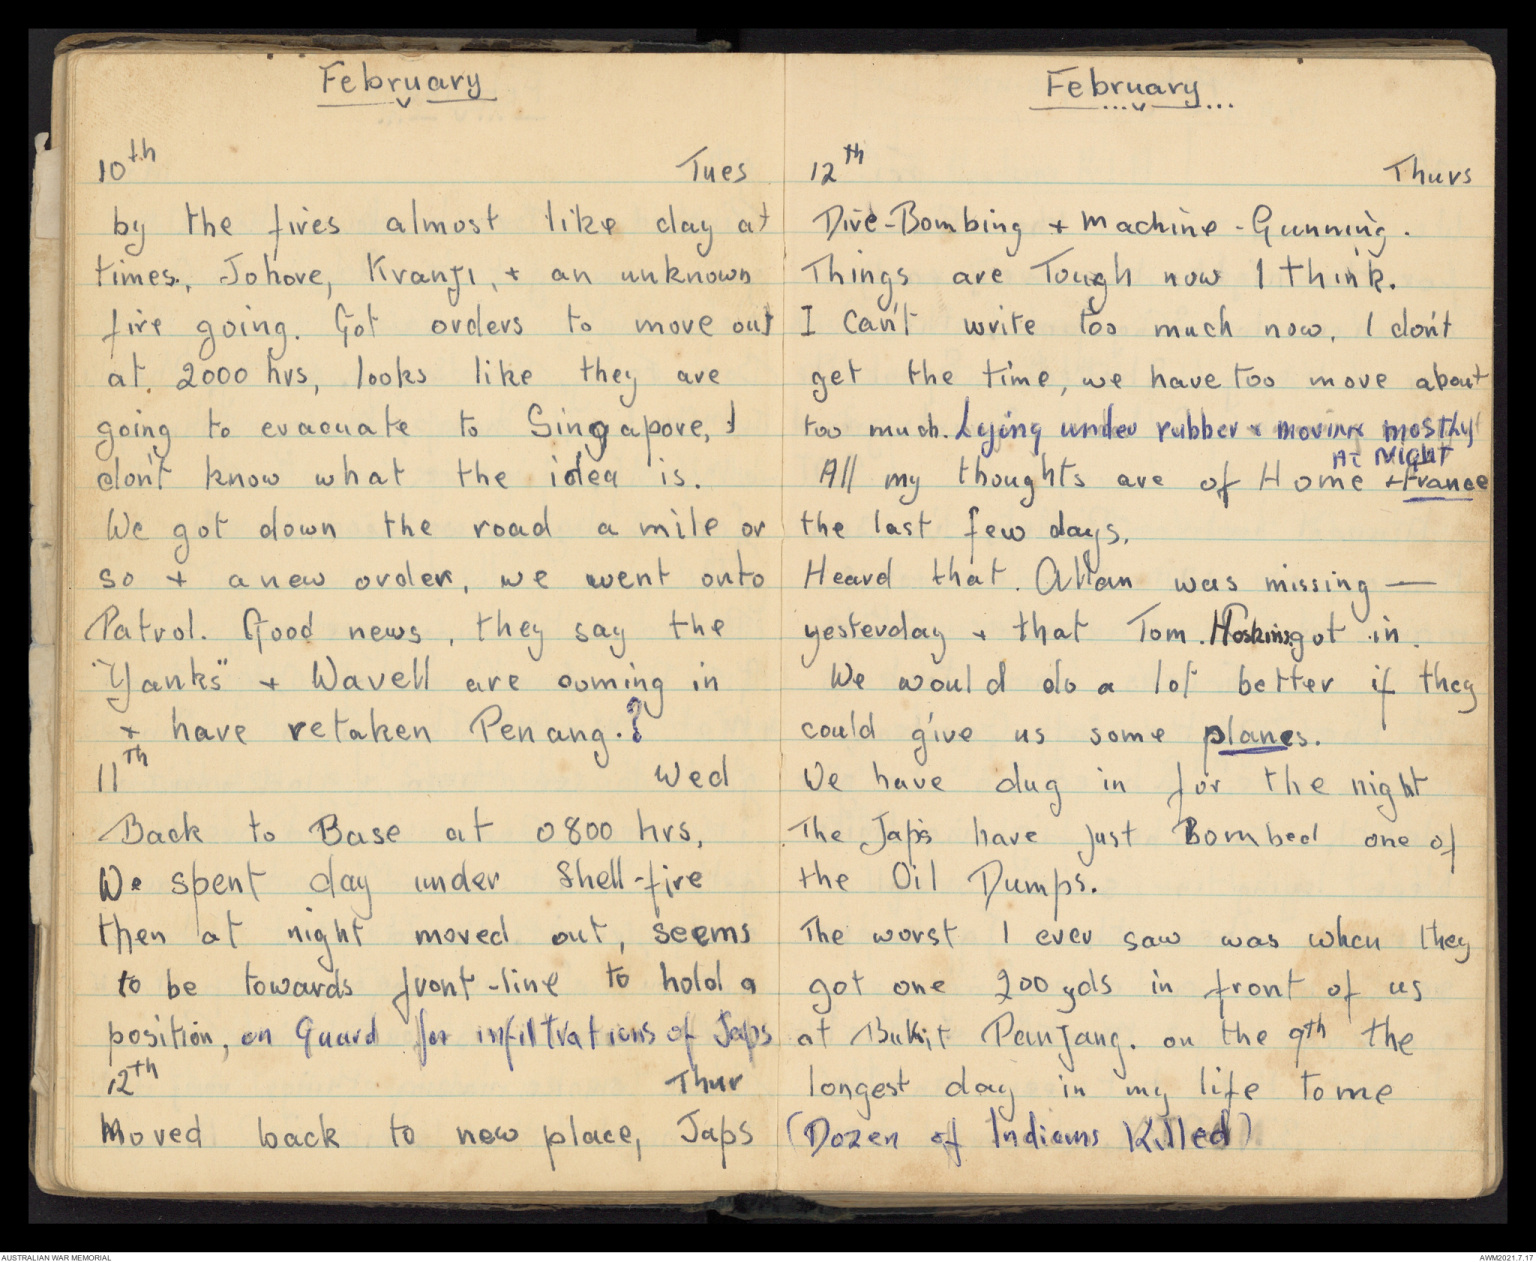 February
10th Tues
by the fires almost like day at
times., Johore, Kranji, + an unknown
fire going. Got orders to move out
at. 2000 hrs, looks like they are
going to evacuate to Singapore, I
don't know what the idea is.
We got down the road a mile or
so + a new order, we went onto
Patrol. Good news, they say the
"Yanks" + Wavell are coming in
+ have retaken Penang.?
11th Wed
Back to Base at 0800 hrs,
We spent day under Shell-fire
then at night moved out, seems
to be towards front-line to hold a
position, on Guard for infiltrations of Japs
12th Thur
Moved back to new place, Japs
February
12th Thurs
Dive-Bombing + Machine-Gunning.
Things are Tough now I think.
I can't write too much now, I don't
get the time, we have too move about
too much. Lying under rubber + moving mostly
At Night
All my thoughts are of Home + France
the last few days.
Heard that. Allan was missing —
yesterday + that Tom. Hoskins got in.
We would do a lot better if they
could give us some planes.
We have dug in for the night
The Jap's have just Bombed one of
the Oil Dumps.
The worst I ever saw was when they
got one 200 yds in front of us
at Bukit Panjang. on the 9th the
longest day in my life to me
(Dozen of Indians Killed)
AUSTRALIAN WAR MEMORIAL
AWM2021.7.17